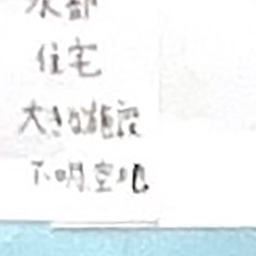 水部
住宅
大きな施設
不明.空地